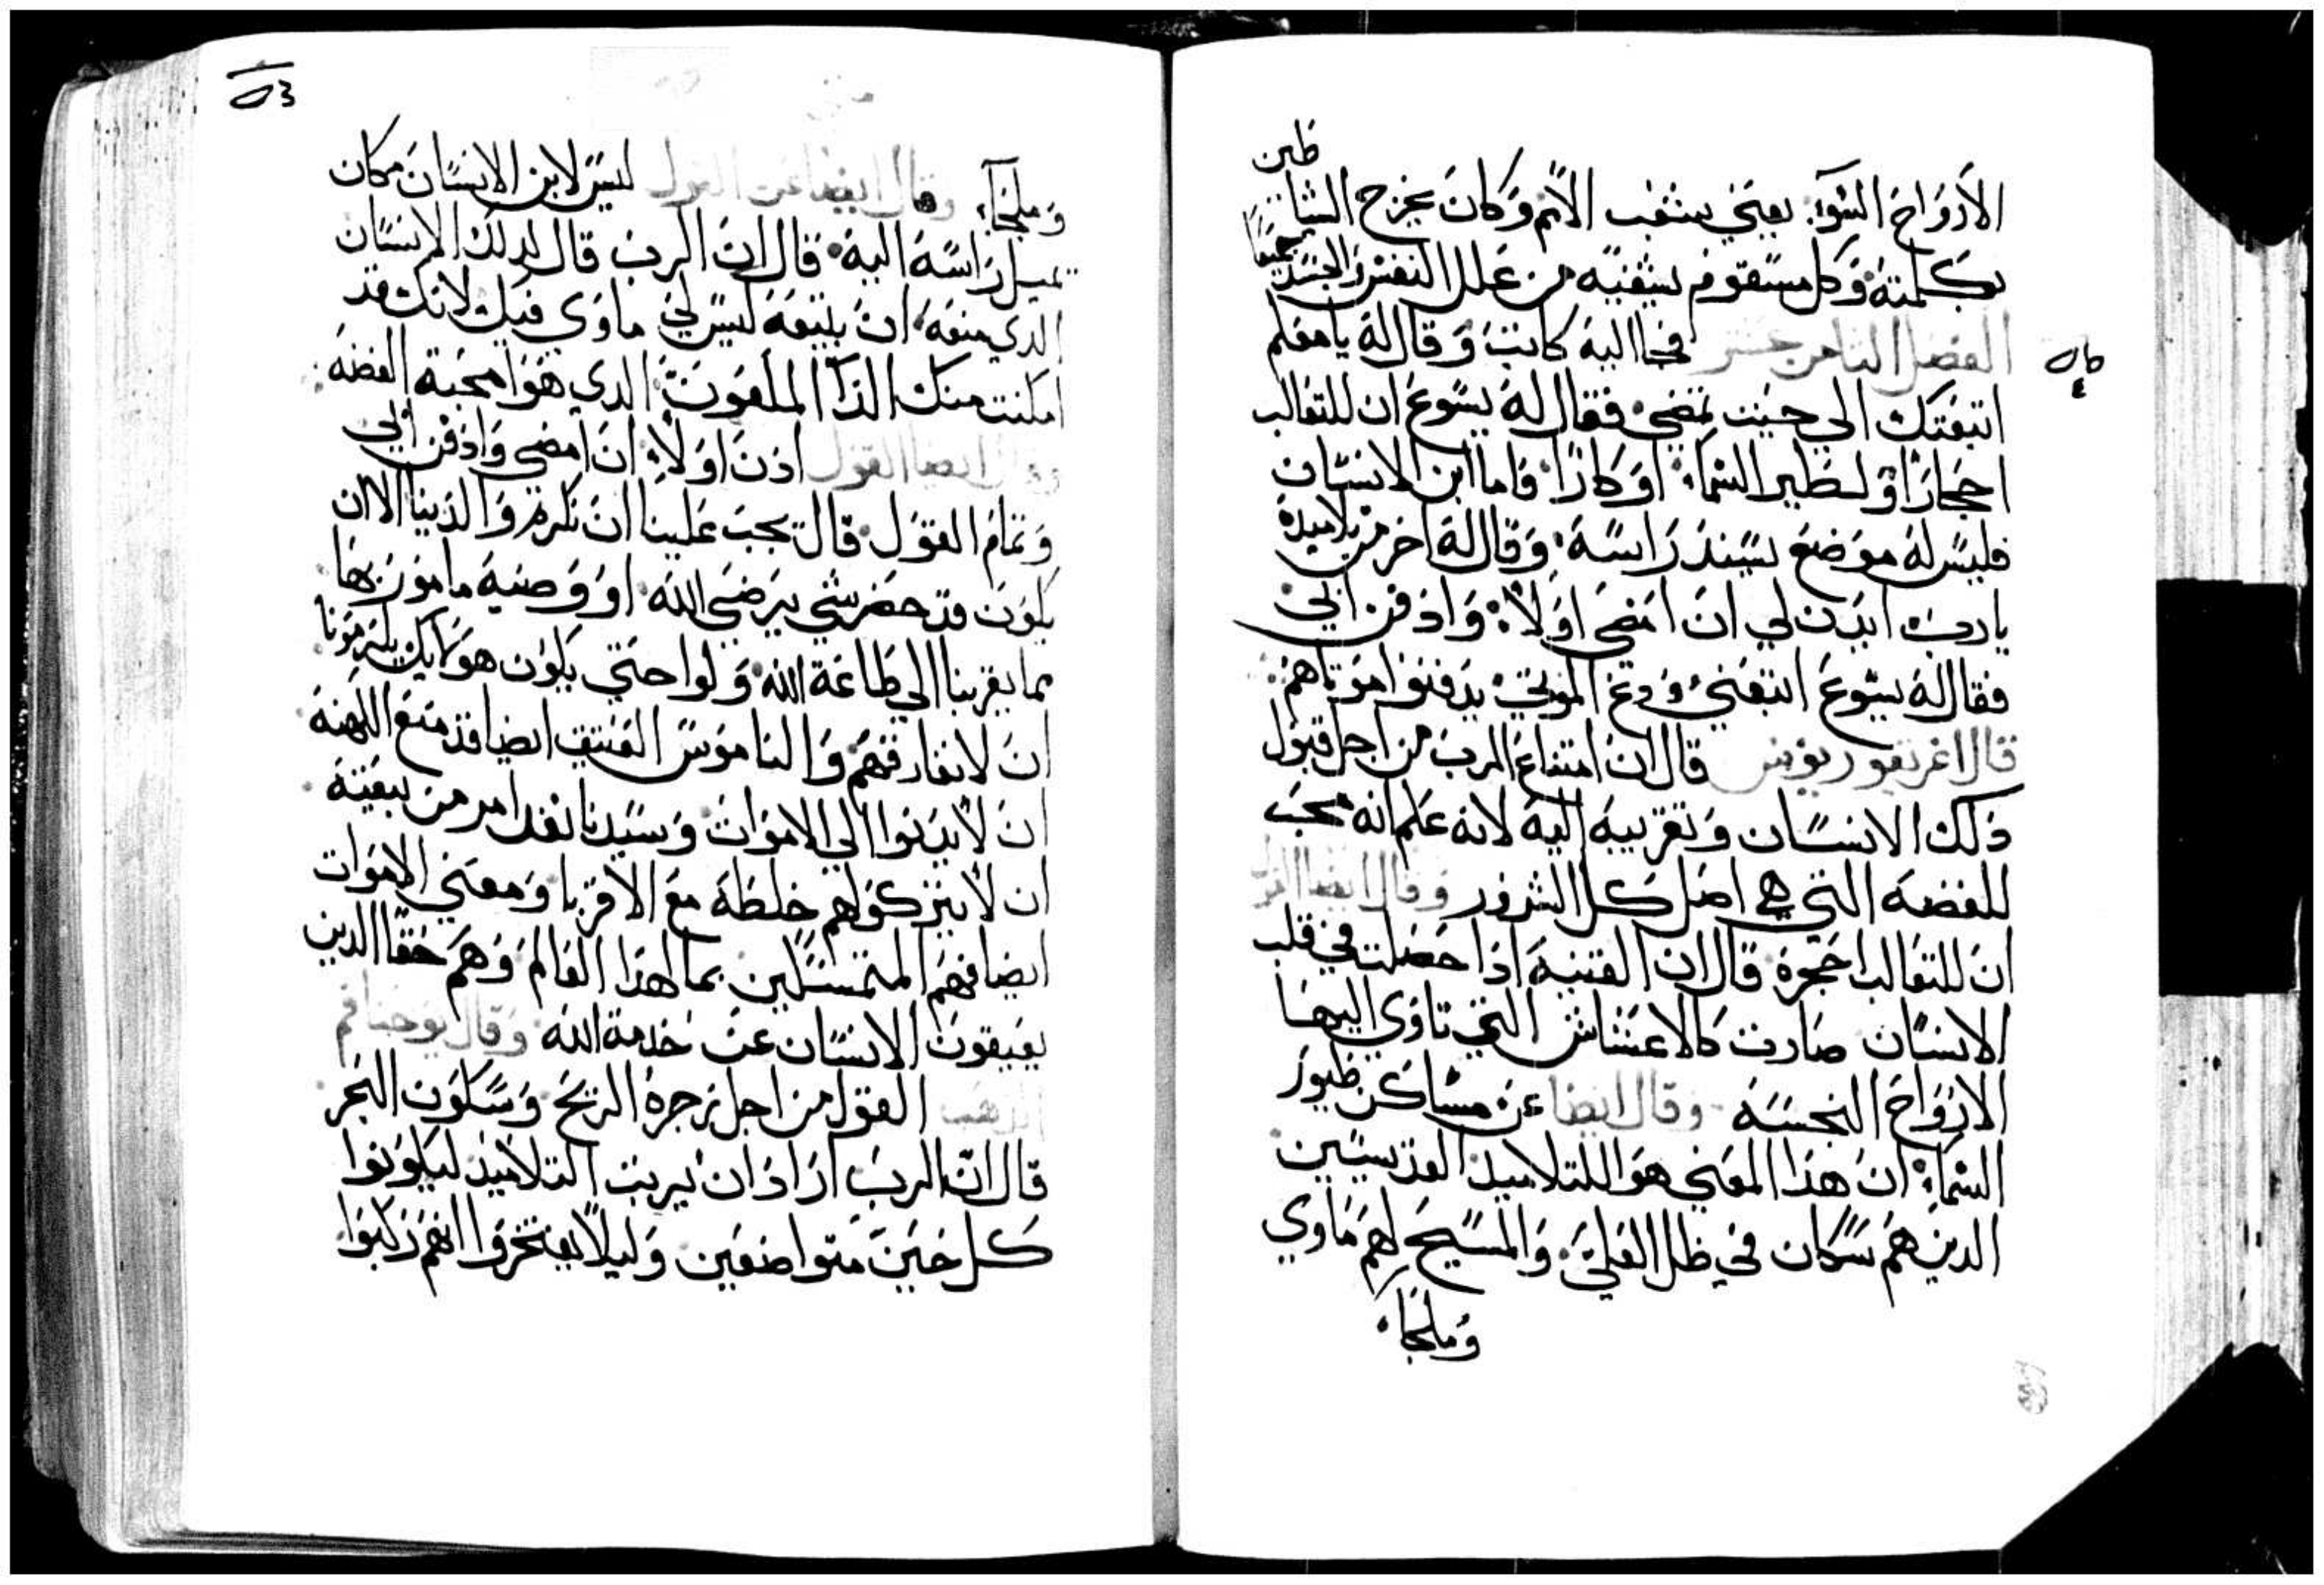 الأرواح السوء: يعني بشعب الأمم وكان يخرج الشياطين
بكلمته وكل مسقوم يشفيه من علل النفس والجسد جميعا
الفصل الثامن عشر فجا اليه كاتب وقال له يا معلم
اتبعك الي حيث تمضي. فقال له يسوع ان للثعالب
احجارا ولطير السماء اوكارا. فاما ابن الانسان
فليس له موضع يسند راسه. وقال له اخر من تلاميذه
يارب ايدن لي ان امضي اولا: وادفن ابي
فقال له يسوع اتبعني ودع الموتي يدفنوا موتاهم:
قال اغريغوريوس قال ان امتناع الرب من اجل قبول
ذلك الانسان وتقريبه اليه لانه علم انه محب
للفضه التي هي اصل كل الشرور وقال ايضا
ان للثعالب احجرة قال ان الفتنه اذا حصلت في قلب
الانسان صارت كالاعشاش التي تاوي اليها
الارواح النجسه وقال ايضا عن مساكن طيور
السماء ان هذا المعني هو اللتلاميد القديسين
الدين هم سكان في ظل العلي. والمسيح لهم ماوي
وملجا.
وملجاء. وقال ايضا عن القول ليس لابن الانسان مكان
تميل راسه اليه. قال ان الرب قال لدلك الانسان
الدي منعه ان يتبعه ليس لي ماوي فيك لانك قد
امكنت منك الدآ الملعون: الدي هوا محبة الفضه:
وقال ايضا القول ادن اولا: ان امضي وادفن ابي
وتمام القول. قال يجب علينا ان نكرم والدينا الا ان
يكون قد حضر شي يرضي الله. او وصيه مامور بها
مما يقربنا الي طاعة الله. ولوا حتي يكون هولايك يلزمونا
ان لا نفارقهم والناموس العتيق ايضا قد منع الكهنه
ان لا يدنوا الي الاموات. وسيدنا نقد امر من يتبعه
ان لا يتركوا لهم خلطه مع الاقربا ومعني الاموات
ايضا فهم المتمسكين بما لهذا العالم وهم حقا الدين
يعيقون الانسان عن خدمة الله وقال يوحنا فم
الدهب القول من اجل زجرة الريح وسكون البحر
قال ان الرب اراد ان يربت التلاميذ ليكونوا
كل حين متواضعين وليلا يفتخروا انهم ركبوا